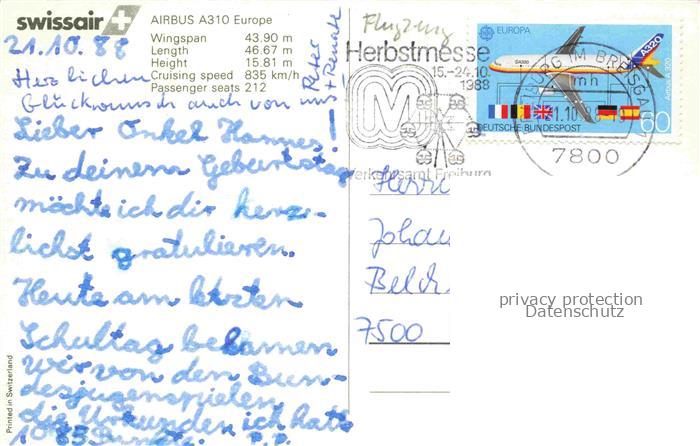 swissair
AIRBUS A310 Europe
Wingspan 43.90 m
Length 46.67 m
Height 15.81 m
Cruising speed 835 km/h
Passenger seats 212
21.10.88
Herzlichen
Glückwunsch auch von uns
Peter
+ Renate
Lieber Onkel Hannes!
Zu deinem Geburtstag
möchte ich dir herz-
lichst gratulieren.
Heute am letzten
Schultag bekamen
wir von den Bun-
desjugenspielen
die Urkunden ich hatte
1085 Punkte
Printed in Switzerland
Flugzeug
Herbstmesse
15.-24.10.
1988
M
Verkehrsamt Freiburg
EUROPA
A320
Airbus A 320
60
DEUTSCHE BUNDESPOST
BURG IM BREISGAU
mh
7800
Herrn
Johan
Belch
7500
privacy protection
Datenschutz